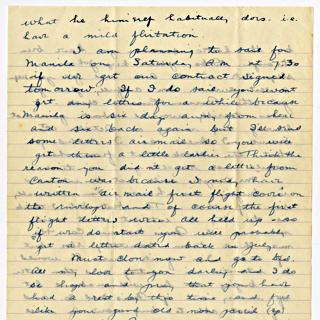 what he himself habitually does. i.e.
have a mild flirtation.
I am planning to sail for
Manila on Saturday A.M at 7:30
if we get our contract signed
tomorrow. If I do sail you wont
get any letters for a while because
Manila is six days away from here
and six back again but I'll send
some letters air mail so you will
get them a little earlier. I think the
reason you didn't get a letter from
Canton was because I
written "air mail first flight cover" on
the envelope and of course the first
flight letters were all held up - so
if we do start you will probably
get a letter dated back in
Must close now and go to bed.
All my love to you darling and I do
so hope and pray that you have
had a rest by this time and feel
like your good old